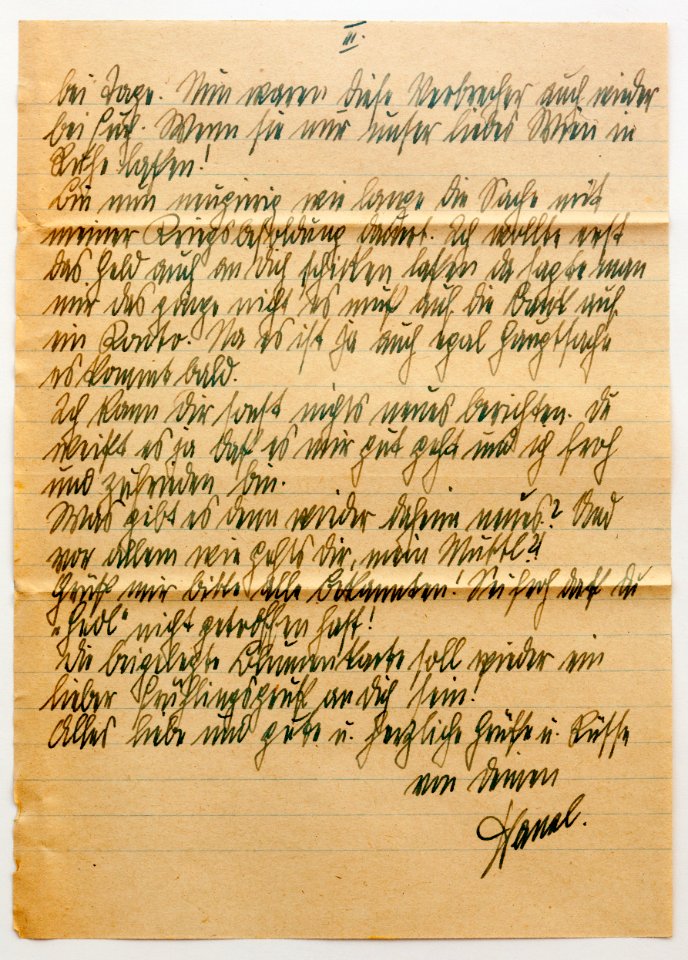 III.
bei Tage. Nun waren diese Verbrecher auch wieder
bei Euch. Wenn sie nur unser liebes Wien in
Ruhe laßen!
Bin nun neugierig wie lange die Sache mit
meiner Kriegsbesoldung dauert. Ich wollte erst
das Geld auch an Dich schicken laßen da sagte man
mir das ginge nicht es muß auf die Bank auf
ein Konto. Na es ist ja auch egal Hauptsache
es kommt bald.
Ich kann Dir sonst nichts neues berichten. Du
weißt es ja daß es mir gut geht und ich froh
und zufrieden bin.
Was gibt es denn wieder daheim neues? Und
vor allem wie gehts Dir, mein
Grüß mir bitte alle Bekannten! Sei froh daß du
"Hedl" nicht getroffen hast!
Die beigelegte Blumenkarte soll wieder ein
lieber Frühlingsgruß an dich sein!
Alles liebe und gute u. herzliche Grüße u. Küsse
von deinem